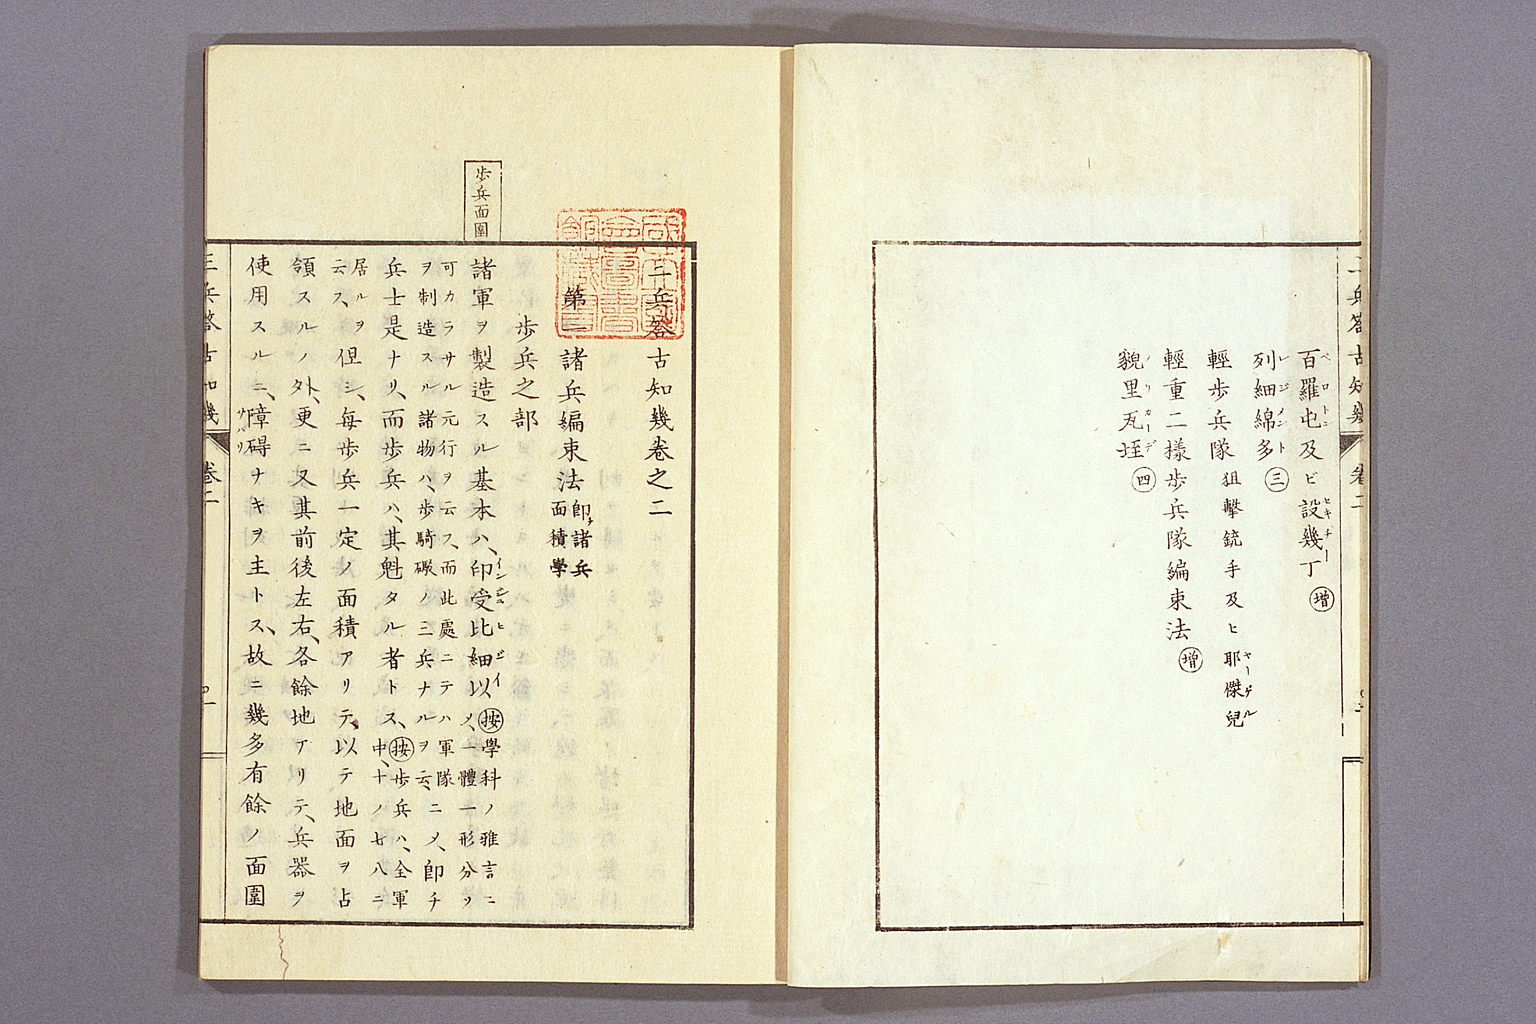 百羅屯及ビ設幾丁 増
列細綿多 三
輕歩兵隊 狙擊銃手及ヒ耶傑兒
輕重二樣歩兵隊編束法 増
貌里瓦垤 四
三兵答古知幾 卷二
三兵答古知幾卷之二
第一 諸兵編束法 即チ諸兵面積學
歩兵之部
歩兵面圍
諸軍ヲ製造スル基本ハ、印受比細以 按學科ノ雅言ニメ、一體一形分ツ
可カラサル元行ヲ云ス、而此處ニテハ軍隊ヲ制造スル諸物ハ、歩騎礮ノ三兵ナルヲ云、ニメ、即チ
兵士是ナリ、而歩兵ハ、其魁タル者トス、按歩兵ハ、全軍中、十ノ七八ニ
居ルヲ云ス、但シ、毎歩兵一定ノ面積アリテ、以テ地面ヲ占
領スルノ外、更ニ又其前後左右、各餘地アリテ、兵器ヲ
使用スルニ、障碍ナキヲ主トス、故ニ幾多有餘ノ面圍
三兵答古知幾 卷二